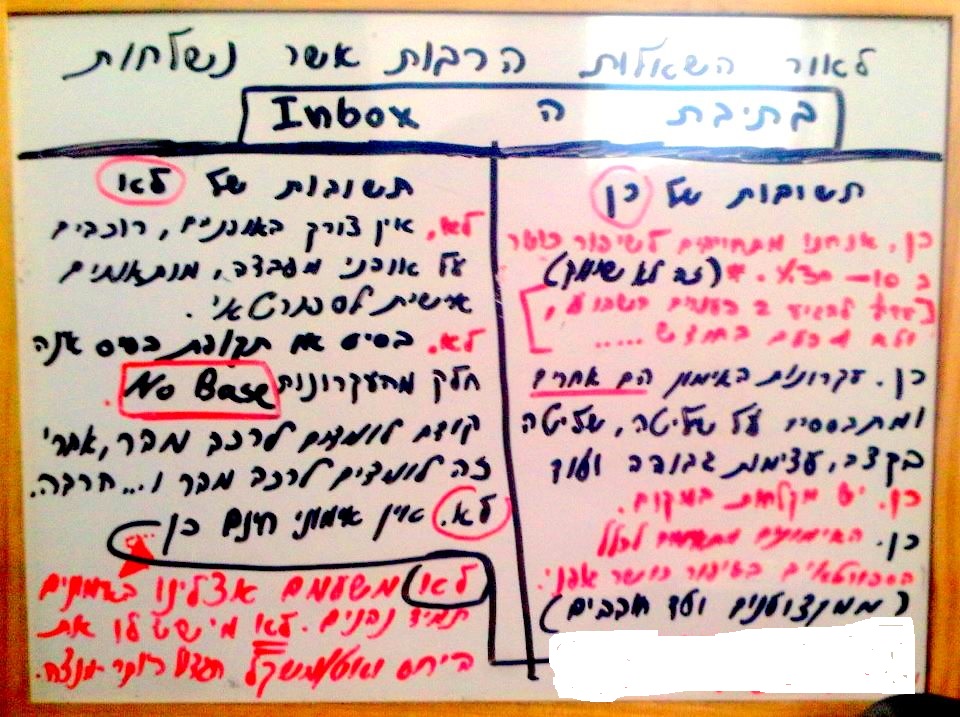 לאור השאלות הרבות אשר נשלחות
בתיבת ה Inbox
תשובות של כן
כן, אנחנו מתחייבים לשיפור כושר
ב 10-
(זה לא שיווק)
להגיד 2 פעמים בשבוע,
ולא פעם בחודש .....
כן. עקרונות באימון הם אחרים
ומתבססים על שליטה, שליטה
בקצב, עצימות גבוהה ועוד
כן. יש מקלחות במקום.
כן. האימונים מתאימים לכלל
הספורטאים בשיפור כושר אפני.
(ממקצוענים ועד חובבים)
תשובות של לא
לא, אין צורך באופניים, רוכבים
על אופני מעבדה, מותאמים
אישית לספורטאי.
לא. בסיס או תקופת בסיס אינה
חלק מהעקרונות No Base
קודם לומדים לרכב מהר, אחרי
זה לומדים לרכב מהר ו... הרבה.
לא. אין אימוני חינם כן
לא משעמם אצלינו באימונים
תמיד נהנים. לא מי ששם לו את
ביחס ואט/משקל הגבוה ביותר מנצח.